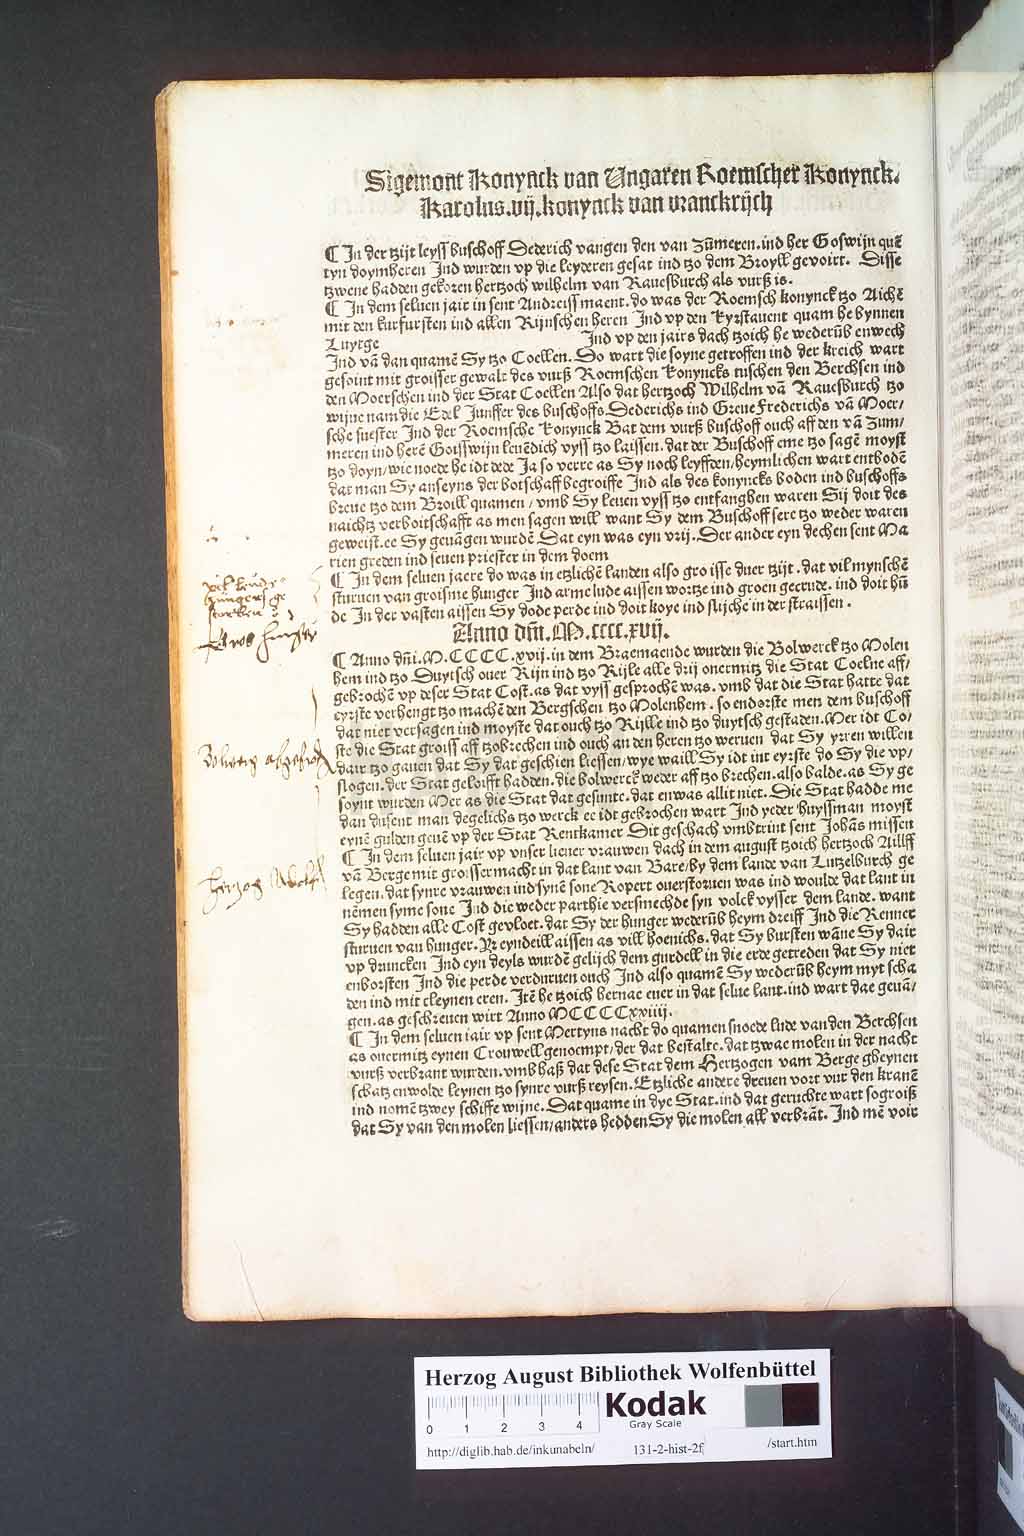 Sigemont Konynck van Ungaren Roemscher Konynck.
Karolus.vij.konynck van vranckrijch
¶ In der tzijt leyss buschoff Dederich vangen den van Zũmeren.ind her Goswijn quẽ
tyn doymheren Ind wurden vp die leyderen gesat ind tzo dem Broyll gevoirt. Disse
tzwene hadden gekoren hertzoch wilhelm van Rauesburch als vurß is.
¶ In dem seluen jair in sent Andreiss maent.do was der Roemsch konynck tzo Aichẽ
mit den kurfursten ind allen Rijnschen heren Ind vp den kyrstauent quam he bynnen
Luytge Ind vp den jairs dach tzoich he wederũb enwech
Ind vã dan quamẽ Sy tzo Coellen. So wart die soyne getroffen ind der kreich wart
gesoint mit groisser gewalt des vurß Roemschen Konyncks tuschen den Berchsen ind
den Moerschen ind der Stat Coellen Also dat hertzoch Wilhelm vã Rauesburch tzo
wijue nam die Edel Junffer des buschoffs.Dederichs ind Greue Frederichs vã Moer/
sche suester Ind der Roemsche Konynck Bat dem vurß buschoff ouch aff den vã Zum/
meren ind herẽ Goisswijn leuẽdich vyss tzo laissen.dat der Buschoff eme tzo sagẽ moyst
tzo doyn/wie noede he idt dede Ja so verre as Sy noch leyffden/heymlichen wart entbodẽ
dat man Sy anseyns der botschaff begroiffe Ind als des konyncks boden ind buschoffs
breue tzo dem Broill quamen/vmb Sy leuen vyss tzo entfanghen waren Sij doit des
naichtz verboitschafft as men sagen will want Sy dem Buschoff sere tzo weder waren
geweist.ee Sy geuãgen wurdẽ.Dat eyn was eyn vrij.Der ander eyn dechen sent Ma
rien greden ind seuen priester in dem doem
¶ In dem seluen jaere do was in etzlichẽ landen also gro isse duer tzijt.dat vil mynschẽ
sturuen van groisme hunger Ind arme lude aissen wortze ind groen gecrude.ind doit hũ
de In der vasten aissen Sy dode perde ind doit koye ind slijche in der straissen.
Anno dñi.M.cccc.xvij.
¶ Anno dñi.M.CCCC.xvij.in dem Braemaende wurden die Bolwerck tzo Molen
hem ind tzo Duytsch ouer Rijn ind tzo Rijle alle drij ouermitz die Stat Coelne aff/
gebrochẽ vp deser Stat Cost.as dat vyss gesprochẽ was.vmb dat die Stat hatte dat
eyrste verhengt tzo machẽ den Bergschen tzo Molenhem.so endorste men dem buschoff
dat niet versagen ind moyste dat ouch tzo Rijlle ind tzo duytsch gestaden.Mer idt Co/
ste die Stat groiss aff tzobrechen ind ouch an den heren tzo weruen dat Sy yrren willen
dair tzo gauen dat Sy dat geschien liessen/wye waill Sy idt int eyrste do Sy die vp/
slogen.der Stat geloifft hadden.die bolwerck weder aff tzo brechen.also balde.as Sy ge
soynt wurden Mer as die Stat dat gesunte.dat enwas allit niet. Die Stat hadde me
dan dusent man degelichs tzo werck ee idt gebrochen wart Ind yeder huyssman moyst
eynẽ gulden geuẽ vp der Stat Rentkamer Dit geschach vmbtrint sent Johãs missen
¶ In dem seluen jair vp vnser lieuer vrauwen dach in dem august tzoich hertzoch Ailff
vã Berge mit groisser macht in dat lant van Bare/by dem lande van Lutzelburch ge
legen.dat synre vrauwen ind synẽ sone Ropert ouerstoruen was ind woulde dat lant in
nẽmen syme sone Ind die weder parthie versmechde syn volck vysser dem lande. want
Sy hadden alle Cost gevloet.dat Sy der hunger wederũb heym dreiff Ind die Renner
sturuen van hunger. eyndeill aissen as vill hoenichs.dat Sy bursten wãne Sy dair
vp druncken Ind eyn deyls wurdẽ gelijch dem gurdell in die erde getreden dat Sy niet
enborsten Ind die perde verduruen ouch Ind also quamẽ Sy wederũb heym myt scha
den ind mit cleynen eren. Itẽ he tzoich hernae euer in dat selue lant.ind wart dae geuã/
gen.as geschreuen wirt Anno MCCCCxxiiij.
¶ In dem seluen iair vp sent Mertyns nacht do quamen snoede lude van den Berchsen
as ouermitz eynen Crouwell genoempt/der dat bestalte.dat tzwae molen in der nacht
vurß verbrant wurden.vmb haß dat dese Stat dem Hertzogen vam Berge gheynen
schatz enwolde leynen tzo synre vurß reysen.Etzliche andere dreuen vort vur den kranẽ
ind nomẽ tzwey schiffe wijne.Dat quame in dye Stat.ind dat geruchte wart sogroiß
dat Sy van den molen liessen/anders hedden Sy die molen all verbrãt. Ind mẽ voir
hunger ge
storben
Gros hunger
Bolwerg abgebroch
herzog Adolf
Herzog August Bibliothek Wolfenbüttel
0 1 2 3 4
Kodak
Gray Scale
http://diglib.hab.de/inkunabeln/ 131-2-hist-2f /start.htm